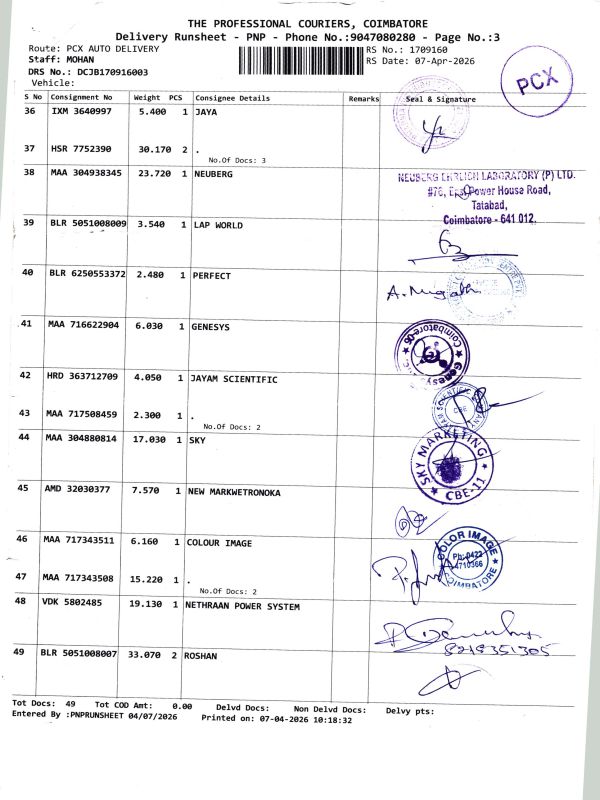 THE PROFESSIONAL COURIERS, COIMBATORE
Delivery Runsheet - PNP - Phone No.:9047080280 - Page No.:3
Route: PCX AUTO DELIVERY
RS No.: 1709160
Staff: MOHAN
RS Date: 07-Apr-2026
DRS No.: DCJB170916003
Vehicle:
PCX
S No Consignment No Weight PCS Consignee Details Remarks Seal & Signature
36 IXM 3640997 5.400 1 JAYA
37 HSR 7752390 30.170 2 .
No.Of Docs: 3
38 MAA 304938345 23.720 1 NEUBERG
NEUBERG EHRLICH LABORATORY (P) LTD.
#76, East Power House Road,
Tatabad,
Coimbatore - 641 012.
39 BLR 5051008009 3.540 1 LAP WORLD
40 BLR 6250553372 2.480 1 PERFECT
41 MAA 716622904 6.030 1 GENESYS
Coimbatore-06
Genesys
42 HRD 363712709 4.050 1 JAYAM SCIENTIFIC
CBE
43 MAA 717508459 2.300 1 .
No.Of Docs: 2
44 MAA 304880814 17.030 1 SKY
SKY MARKETING
CBE-11
45 AMD 32030377 7.570 1 NEW MARKWETRONOKA
46 MAA 717343511 6.160 1 COLOUR IMAGE
COLOR IMAGE
Ph: 0422
4710366
COIMBATORE
47 MAA 717343508 15.220 1 .
No.Of Docs: 2
48 VDK 5802485 19.130 1 NETHRAAN POWER SYSTEM
8248351305
49 BLR 5051008007 33.070 2 ROSHAN
Tot Docs: 49 Tot COD Amt: 0.00 Delvd Docs: Non Delvd Docs: Delvy pts:
Entered By :PNPRUNSHEET 04/07/2026 Printed on: 07-04-2026 10:18:32